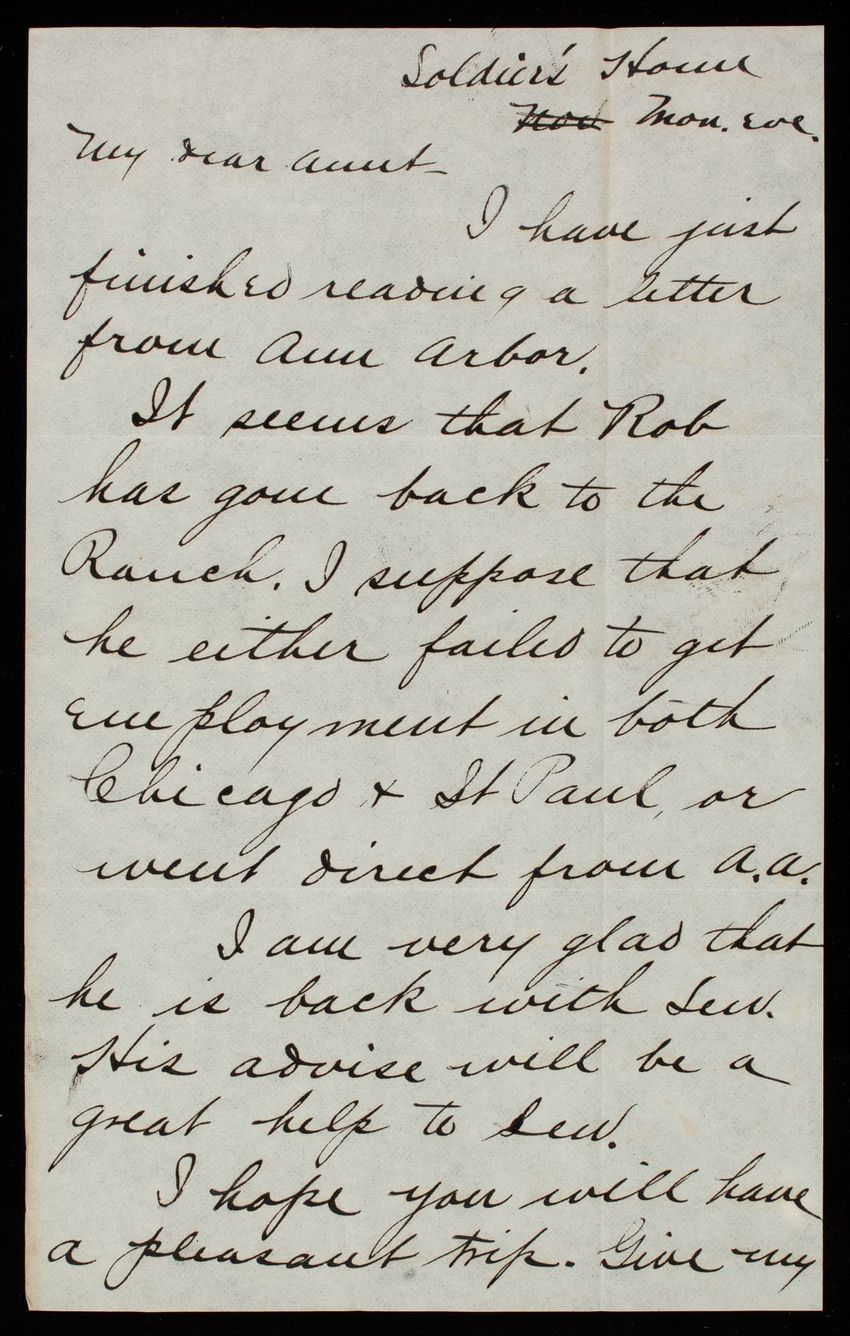 Soldier's Home
Nov Mon. eve.
My dear Aunt -
I have just
finished reading a letter
from Ann Arbor.
It seems that Rob
has gone back to the
Ranch. I suppose that
he either failed to get
employment in both
Chicago & St Paul, or
went direct from A.A.
I am very glad that
he is back with Lew.
His advise will be a
great help to Lew.
I hope you will have
a pleasant trip. Give my